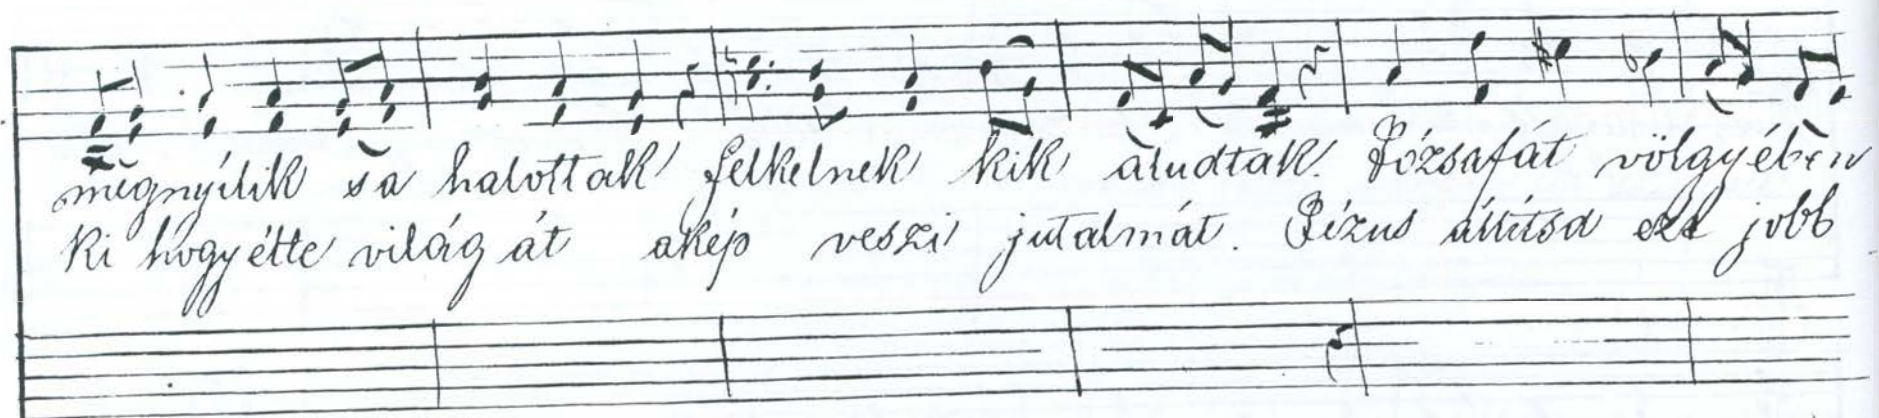 megnyílik sa halottak felkelnek kik aludtak. Józsafát völgyében
Ki hogy élte világát akép veszi jutalmát. Jézus állítsd jobb